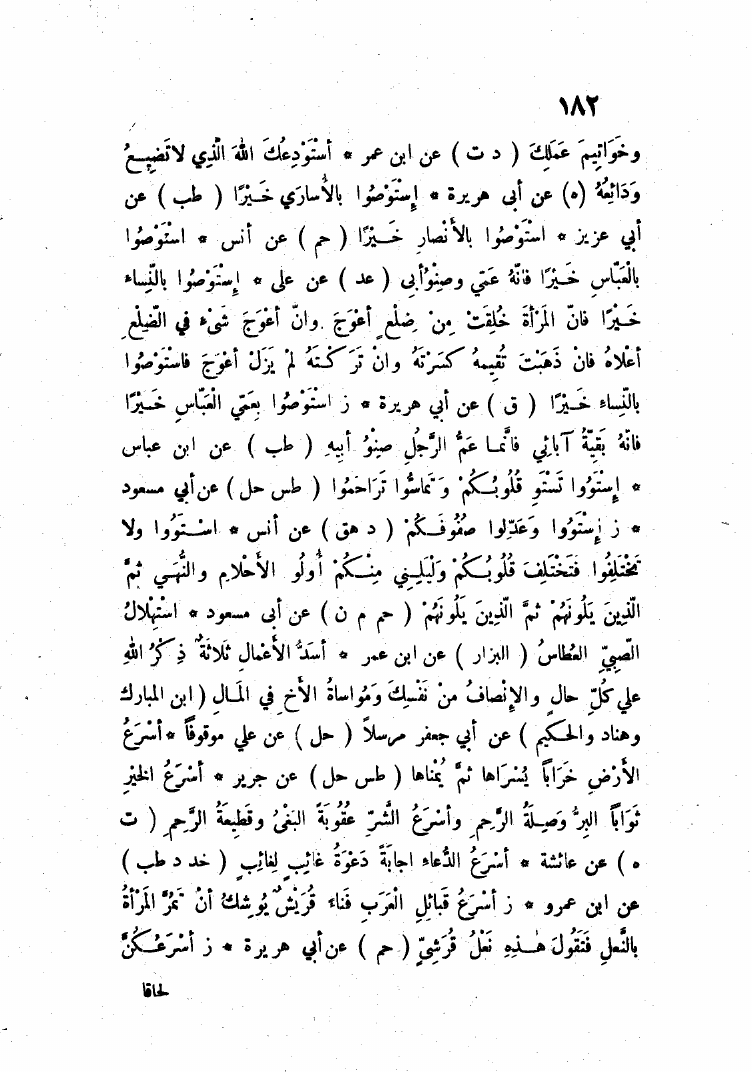 ١٨٢
وخَوَاتِيمَ عَمَلِكَ ( د ت ) عن ابن عمر * أسْتَوْدِعُكَ اللهَ الَّذِي لاتَضِيعُ
وَدَائِعُهُ (ه) عن أبى هريرة * إسْتَوْصُوا بالأُسارَي خَيْرًا ( طب ) عن
أبي عزيز * اسْتَوْصُوا بالأَنْصارِ خَيْرًا ( حم ) عن أنس * اسْتَوْصُوا
بالْعَبَّاسِ خَيْرًا فانَّهُ عَمِّي وصِنْوُأبِي ( عد ) عن على * إسْتَوْصُوا بالنِّساء
خَيْرًا فانَّ المَرْأةَ خُلِقَتْ مِنْ ضِلْعٍ أعْوَجَ وانَّ أعْوَجَ شَىْءٍ فى الضِّلْعِ
أعْلاهُ فانْ ذَهَبْتَ تُقِيمهُ كَسَرْتَهُ وانْ تَرَكْتَهُ لَمْ يَزَلْ أعْوَجَ فاسْتَوْصُوا
بالنِّساءِ خَيْرًا ( ق ) عن أبي هريرة * ز اسْتَوْصُوا بِعَمِّي الْعَبَّاسِ خَيْرًا
فانَّهُ بَقِيَّةُ آبائِي فانَّما عَمُّ الرَّجُلِ صِنْوُ أبِيهِ ( طب ) عن ابن عباس
* إسْتَوُوا تَسْتَوِ قُلُوبُكُمْ وَتَماسُّوا تَرَاحَمُوا ( طس حل ) عن أبي مسعود
* ز إسْتَوُوا وَعَدِّلوا صُفُوفَكُمْ ( د هق ) عن أنس * اسْتَوُوا ولا
تَخْتَلِفُوا فَتَخْتَلِفَ قُلُوبُكُمْ وَلْيَلِنِي مِنْكُمْ أُولُو الأَحْلامِ والنُّهَي ثمَّ
الَّذِينَ يَلُونَهُمْ ثمَّ الَّذِينَ يَلُونَهُمْ ( حم م ن ) عن أبى مسعود * اسْتِهْلالُ
الصَّبِيِّ العُطاسُ ( البزار ) عن ابن عمر * أسَدُّ الأَعْمالِ ثَلاثَةٌ ذِكْرُ اللهِ
علي كُلِّ حالٍ والإنْصافُ مِنْ نَفْسِكَ وَمُواساةُ الأخِ فى المَالِ ( ابن المبارك
وهناد والحكيم ) عن أبي جعفر مرسلاً ( حل ) عن علي موقوفاً * أسْرَعُ
الأَرْضِ خَرَاباً يُسْرَاها ثمَّ يُمْناها ( طس حل ) عن جرير * أسْرَعُ الخَيْرِ
ثَوَاباً البِرُّ وَصِلَةُ الرَّحِمِ وأسْرَعُ الشَّرِّ عُقُوبَةً البَغْىُ وقَطِيعَةُ الرَّحِمِ ( ت
ه ) عن عائشة * أسْرَعُ الدُّعاءِ اجابَةً دَعْوَةُ غائِبٍ لِغائِبٍ ( خد د طب )
عن ابن عمرو * ز أسْرَعُ قَبائِلِ الْعَرَبِ فَناءً قُرَيْشٌ يُوشِكُ أنْ تَمُرَّ المَرْأةُ
بالنَّعلِ فَتَقُولَ هٰذِهِ نَعْلُ قُرَشِيٍّ ( حم ) عن أبي هريرة * ز أسْرَعُكُنَّ
لحاقا